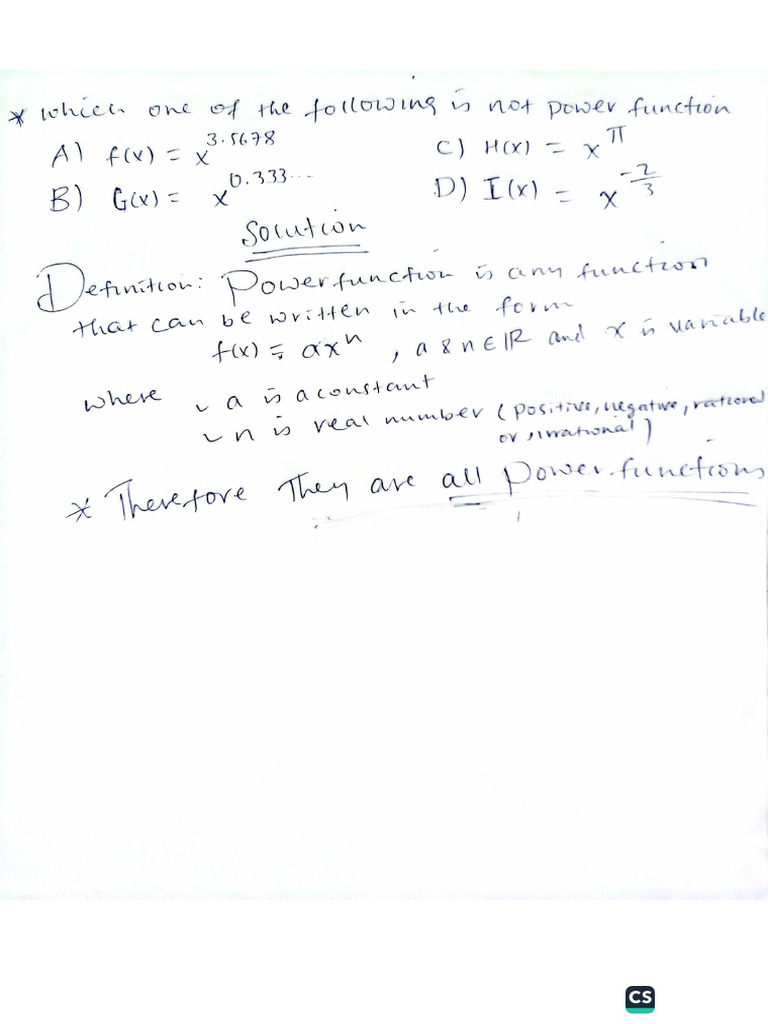 * which one of the following is not power function
A) f(x) = x^3.5678 C) H(x) = x^π
B) G(x) = x^0.333... D) I(x) = x^-2/3
Solution
Definition: Power function is any function
that can be written in the form
f(x) = ax^n , a & n ∈ IR and x is variable
where ✓ a is a constant
✓ n is real number (positive, negative, rational
or, irrational)
* Therefore They are all power functions
CS